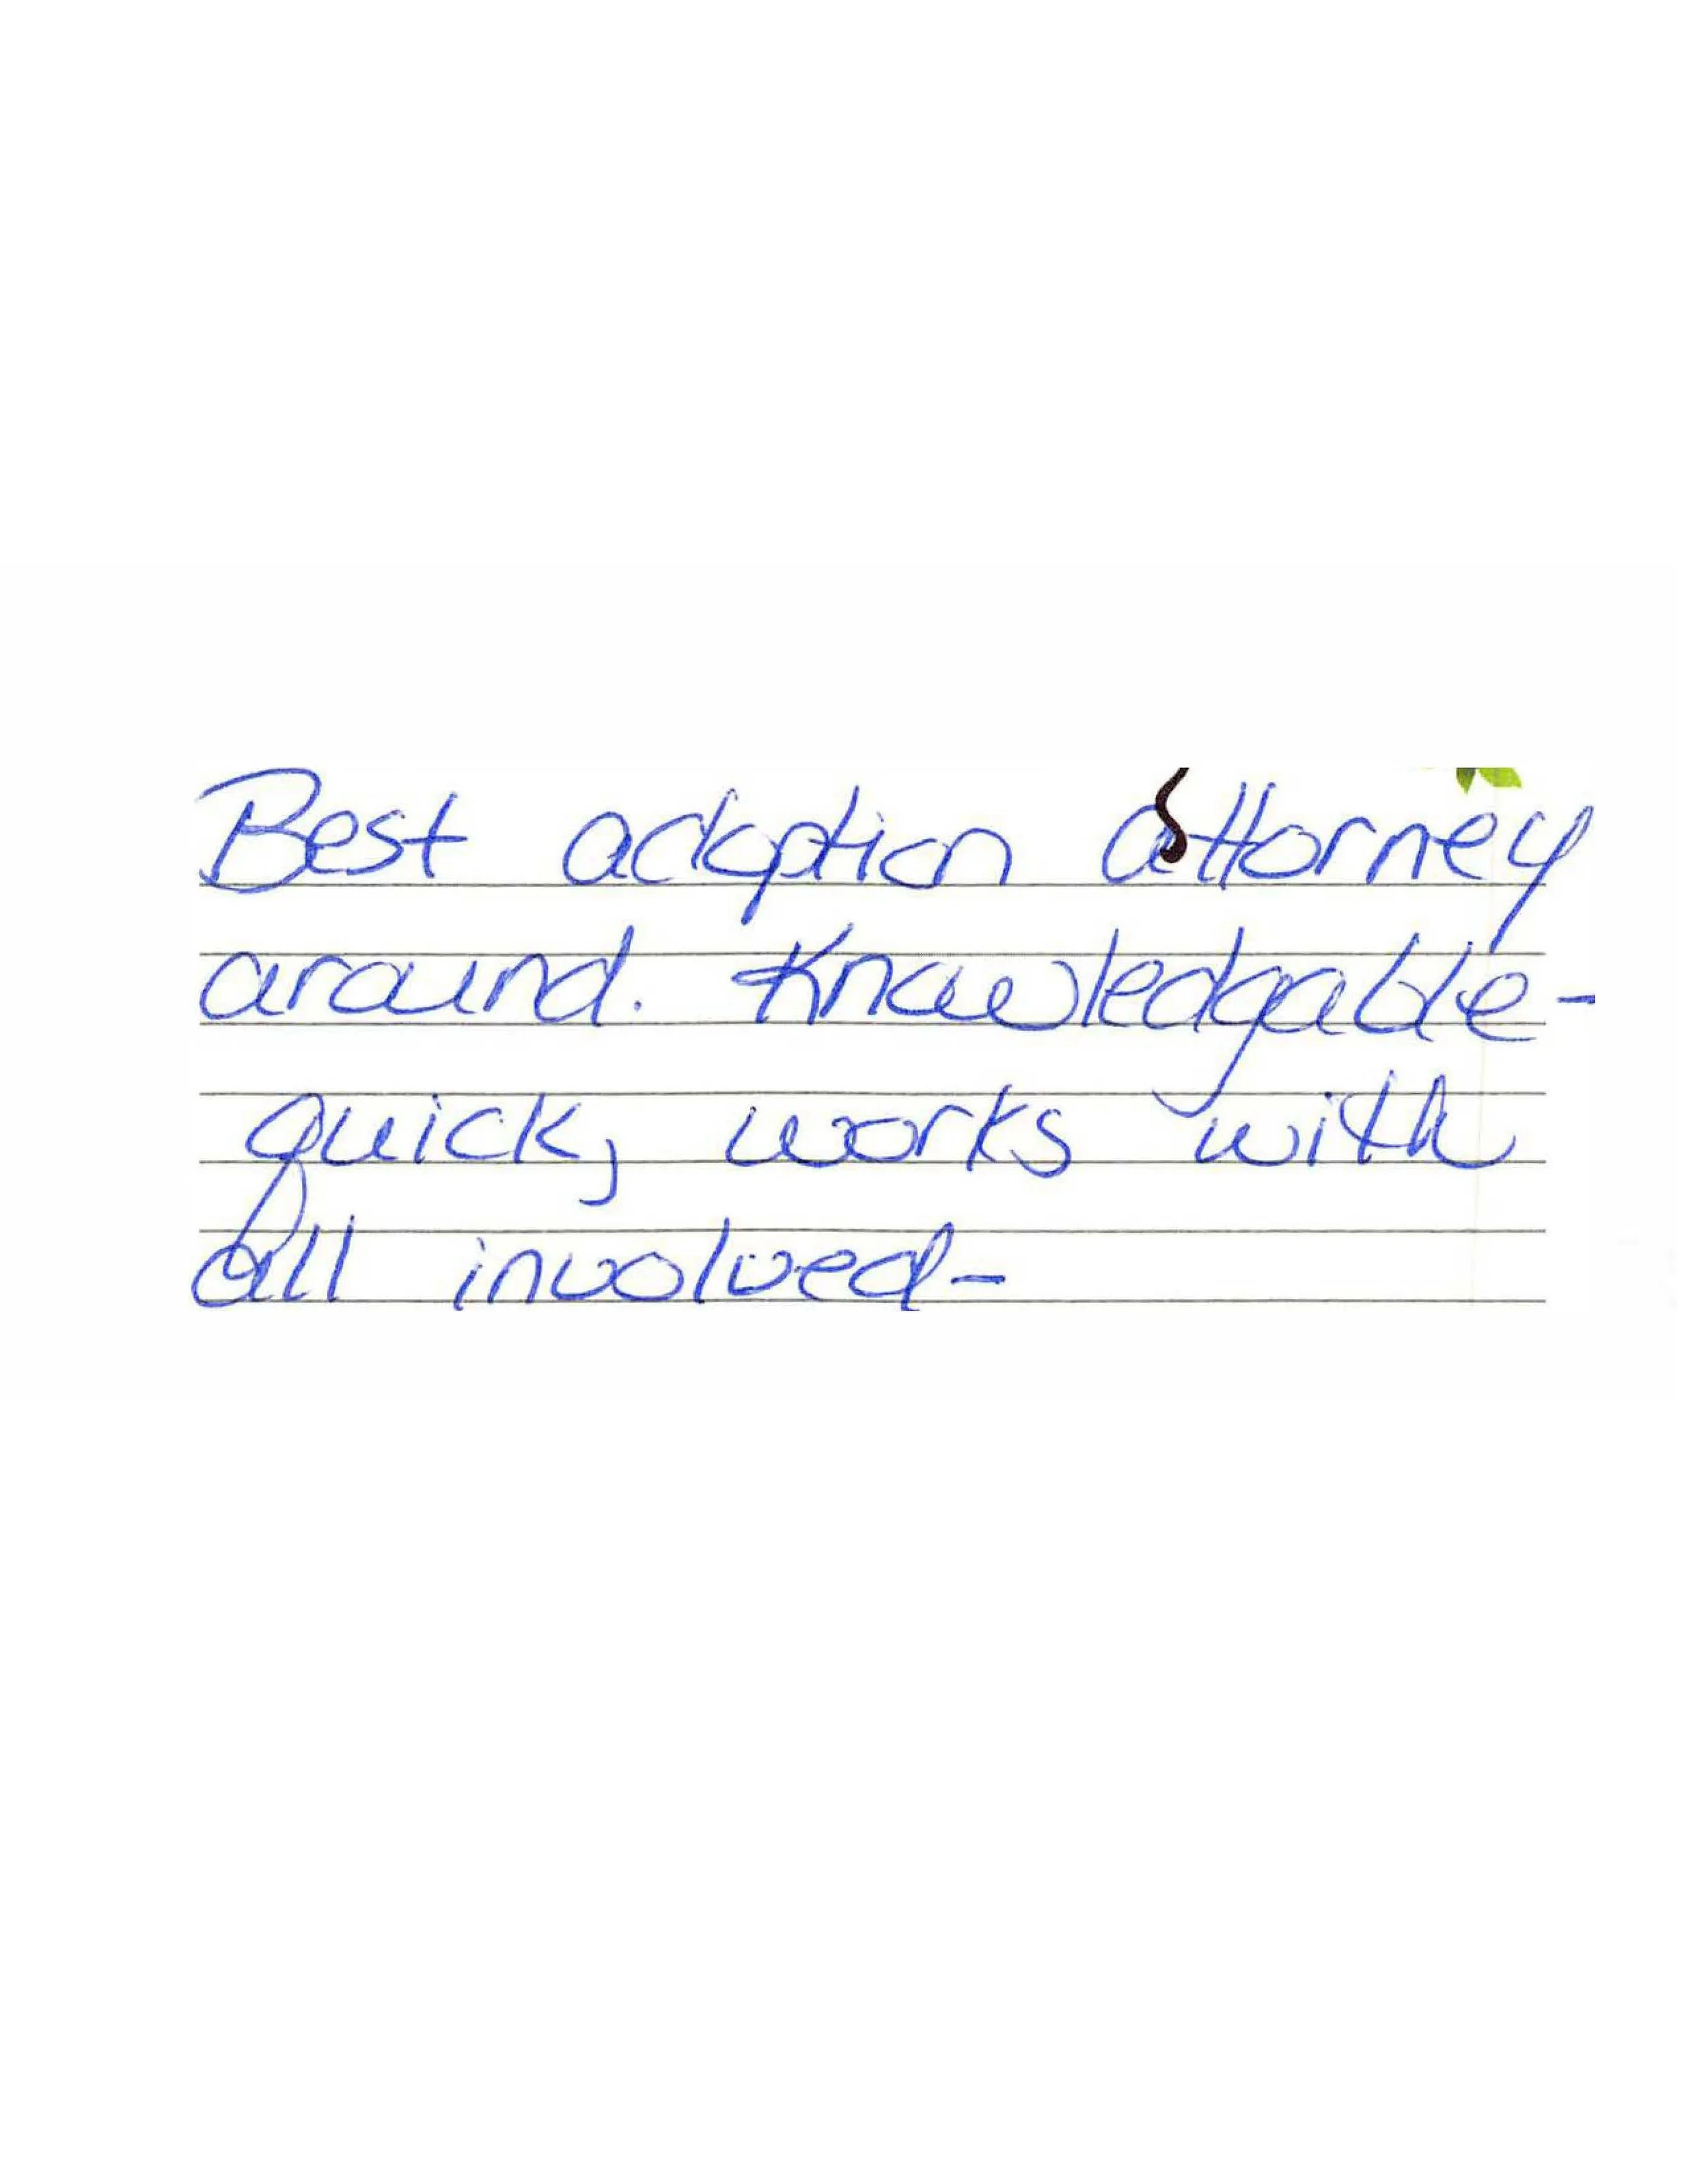 Best adoption attorney
around. Knowledgable-
quick, works with
all involved-